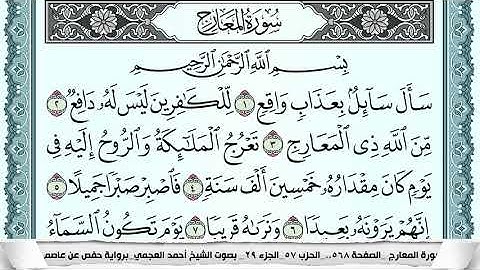 سُورَةُ المَعَارِجِ
بِسْمِ اللَّهِ الرَّحْمَٰنِ الرَّحِيمِ
سَأَلَ سَآئِلٌۢ بِعَذَابٍ وَاقِعٍ ١ لِّلْكَٰفِرِينَ لَيْسَ لَهُۥ دَافِعٌ ٢
مِّنَ اللَّهِ ذِي الْمَعَارِجِ ٣ تَعْرُجُ الْمَلَٰٓئِكَةُ وَالرُّوحُ إِلَيْهِ فِي
يَوْمٍ كَانَ مِقْدَارُهُۥ خَمْسِينَ أَلْفَ سَنَةٍ ٤ فَاصْبِرْ صَبْرًا جَمِيلًا ٥
إِنَّهُمْ يَرَوْنَهُۥ بَعِيدًا ٦ وَنَرَىٰهُ قَرِيبًا ٧ يَوْمَ تَكُونُ السَّمَآءُ
ورة المعارج الصفحة ٥٦٨.. الحزب ٥٧ الجزء ٢٩ بصوت الشيخ أحمد العجمي برواية حفص عن عاصم